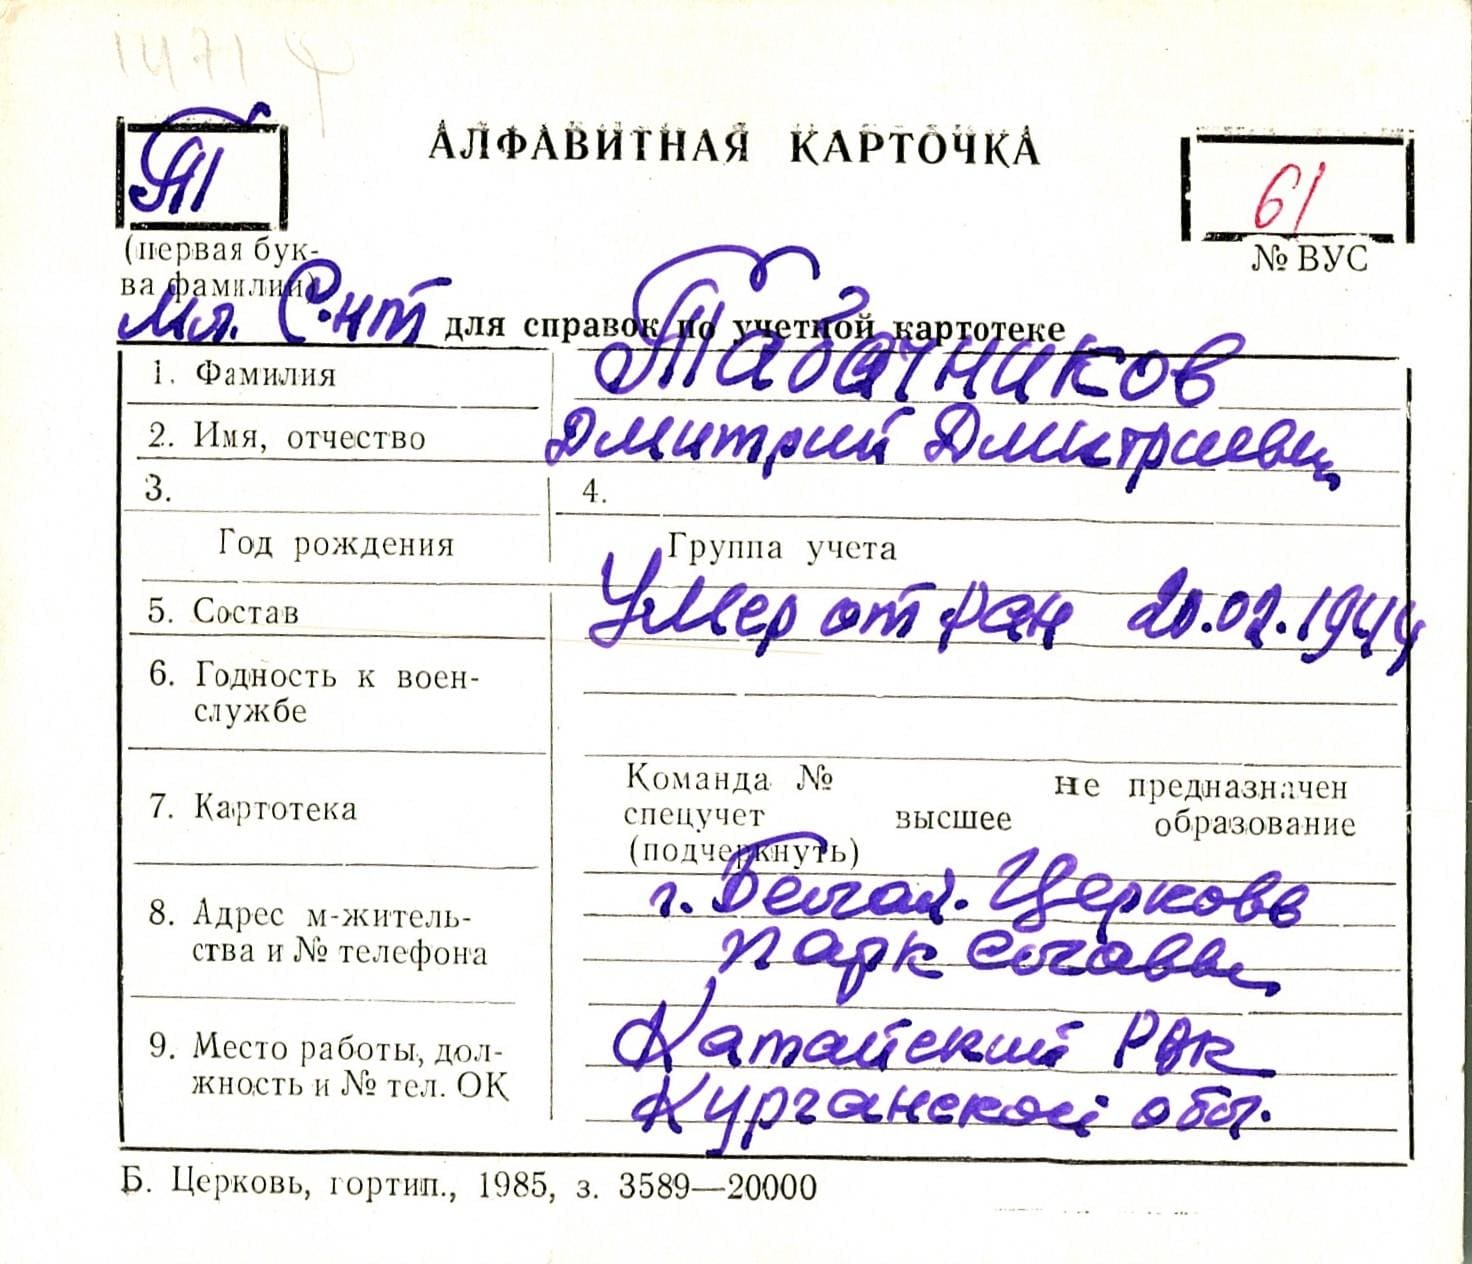 1471
Т
АЛФАВИТНАЯ КАРТОЧКА
61
(первая бук-
ва фамилии)
№ ВУС
мл. С-нт для справок по учетной картотеке
1. Фамилия Табачников
2. Имя, отчество Дмитрий Дмитриевич
3. 4.
Год рождения Группа учета
5. Состав Умер от ран 20.02.1944
6. Годность к воен-
службе
7. Картотека
Команда № не предназначен
спецучет высшее образование
(подчеркнуть)
8. Адрес м-житель-
ства и № телефона
г. Белая. Церковь
парк славы
9. Место работы, дол-
жность и № тел. ОК
Катайский РВК
Курганской обл.
Б. Церковь, гортип., 1985, з. 3589—20000